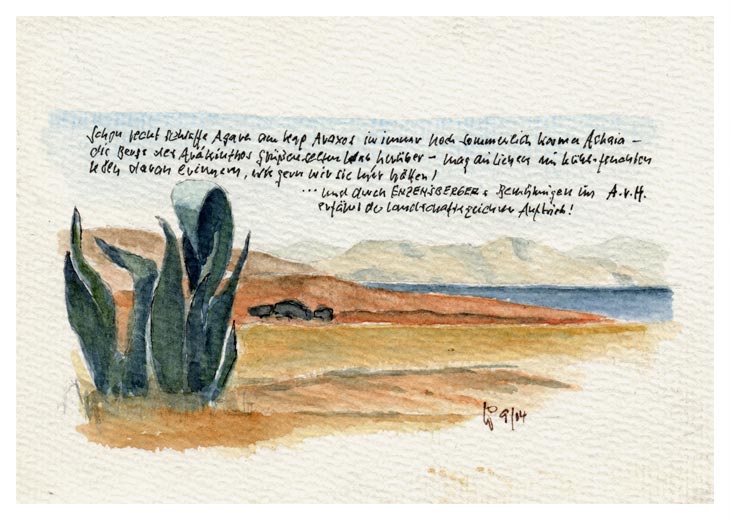 Schon recht schlaffe Agaven am Kap Araxos in immer noch sommerlich warmer Achaia –
die Berge des Arákinthos grüßen herüber – mag an lichen im kühl-feuchten
Köln daran erinnern, wie gern wir sie hier hätten!
... und durch ENZENSBERGERs Bemühungen um A.v.H.
erfährt der Landschaftszeichner Auftrieb!
9/04